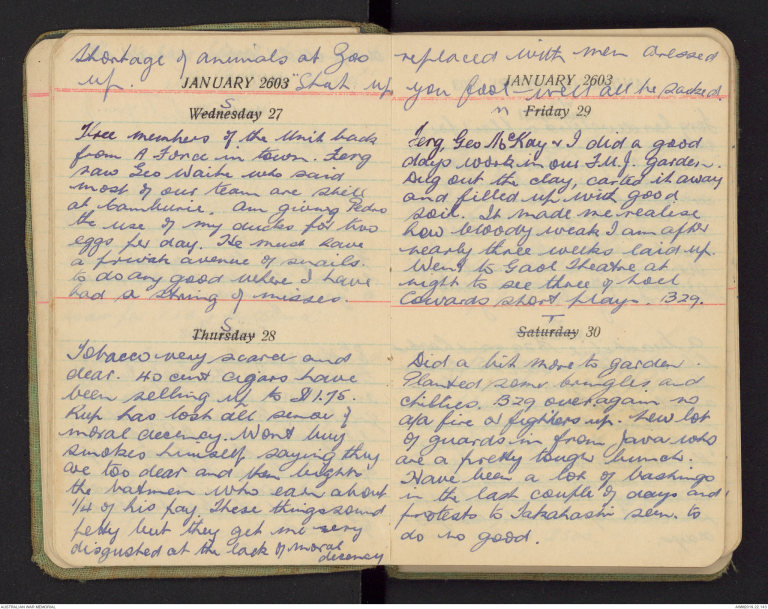 Shortage of animals at Zoo
up. JANUARY 2603 "Shut up
S
Wednesday 27
Three members of the Unit back
from A Force in town. Ferg
saw Geo Waite who said
most of our team are still
at Camburie. Am giving Pedro
the use of my ducks for two
eggs per day. He must have
a private avenue of snails.
to do any good where I have
had a string of misses.
S
Thursday 28
Tobacco very scarce and
dear. 40 cent cigars have
been selling up to $1.75.
Rup has lost all sense of
moral decency. Wont buy
smokes himself saying they
are too dear and then bights
the batmen who earn about
1/4 of his pay. These things sound
petty but they get me very
disgusted at the lack of moral
decency
replaced with men dressed
JANUARY 2603
you fool - we'll all be sacked.
Friday 29
Ferg, Geo McKay & I did a good
days work in our F.M.J. garden.
Dug out the clay, carted it away
and filled up with good
soil. It made me realise
how bloody weak I am after
nearly three weeks laid up.
Went to Gaol Theatre at
night to see three of Noel
Cowards short plays. B29.
T
Saturday 30
Did a bit more to garden.
Planted some bringles and
chillies. B29 over again no
a/a fire or fighters up. New lot
of guards in from Java who
are a pretty tough bunch.
Have been a lot of bashings
in the last couple of days and
protests to Takahashi seem to
do no good.
AUSTRALIAN WAR MEMORIAL